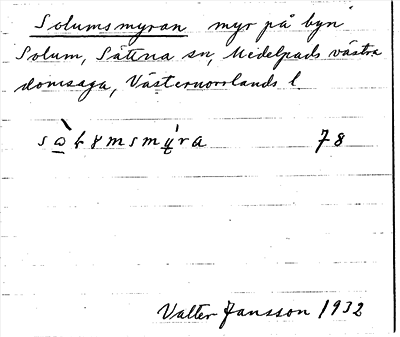 Solumsmyran myr på byn
Solum, Sättna sn, Medelpads västra
domsaga, Västernorrlands l.
78
Valter Jansson 1932